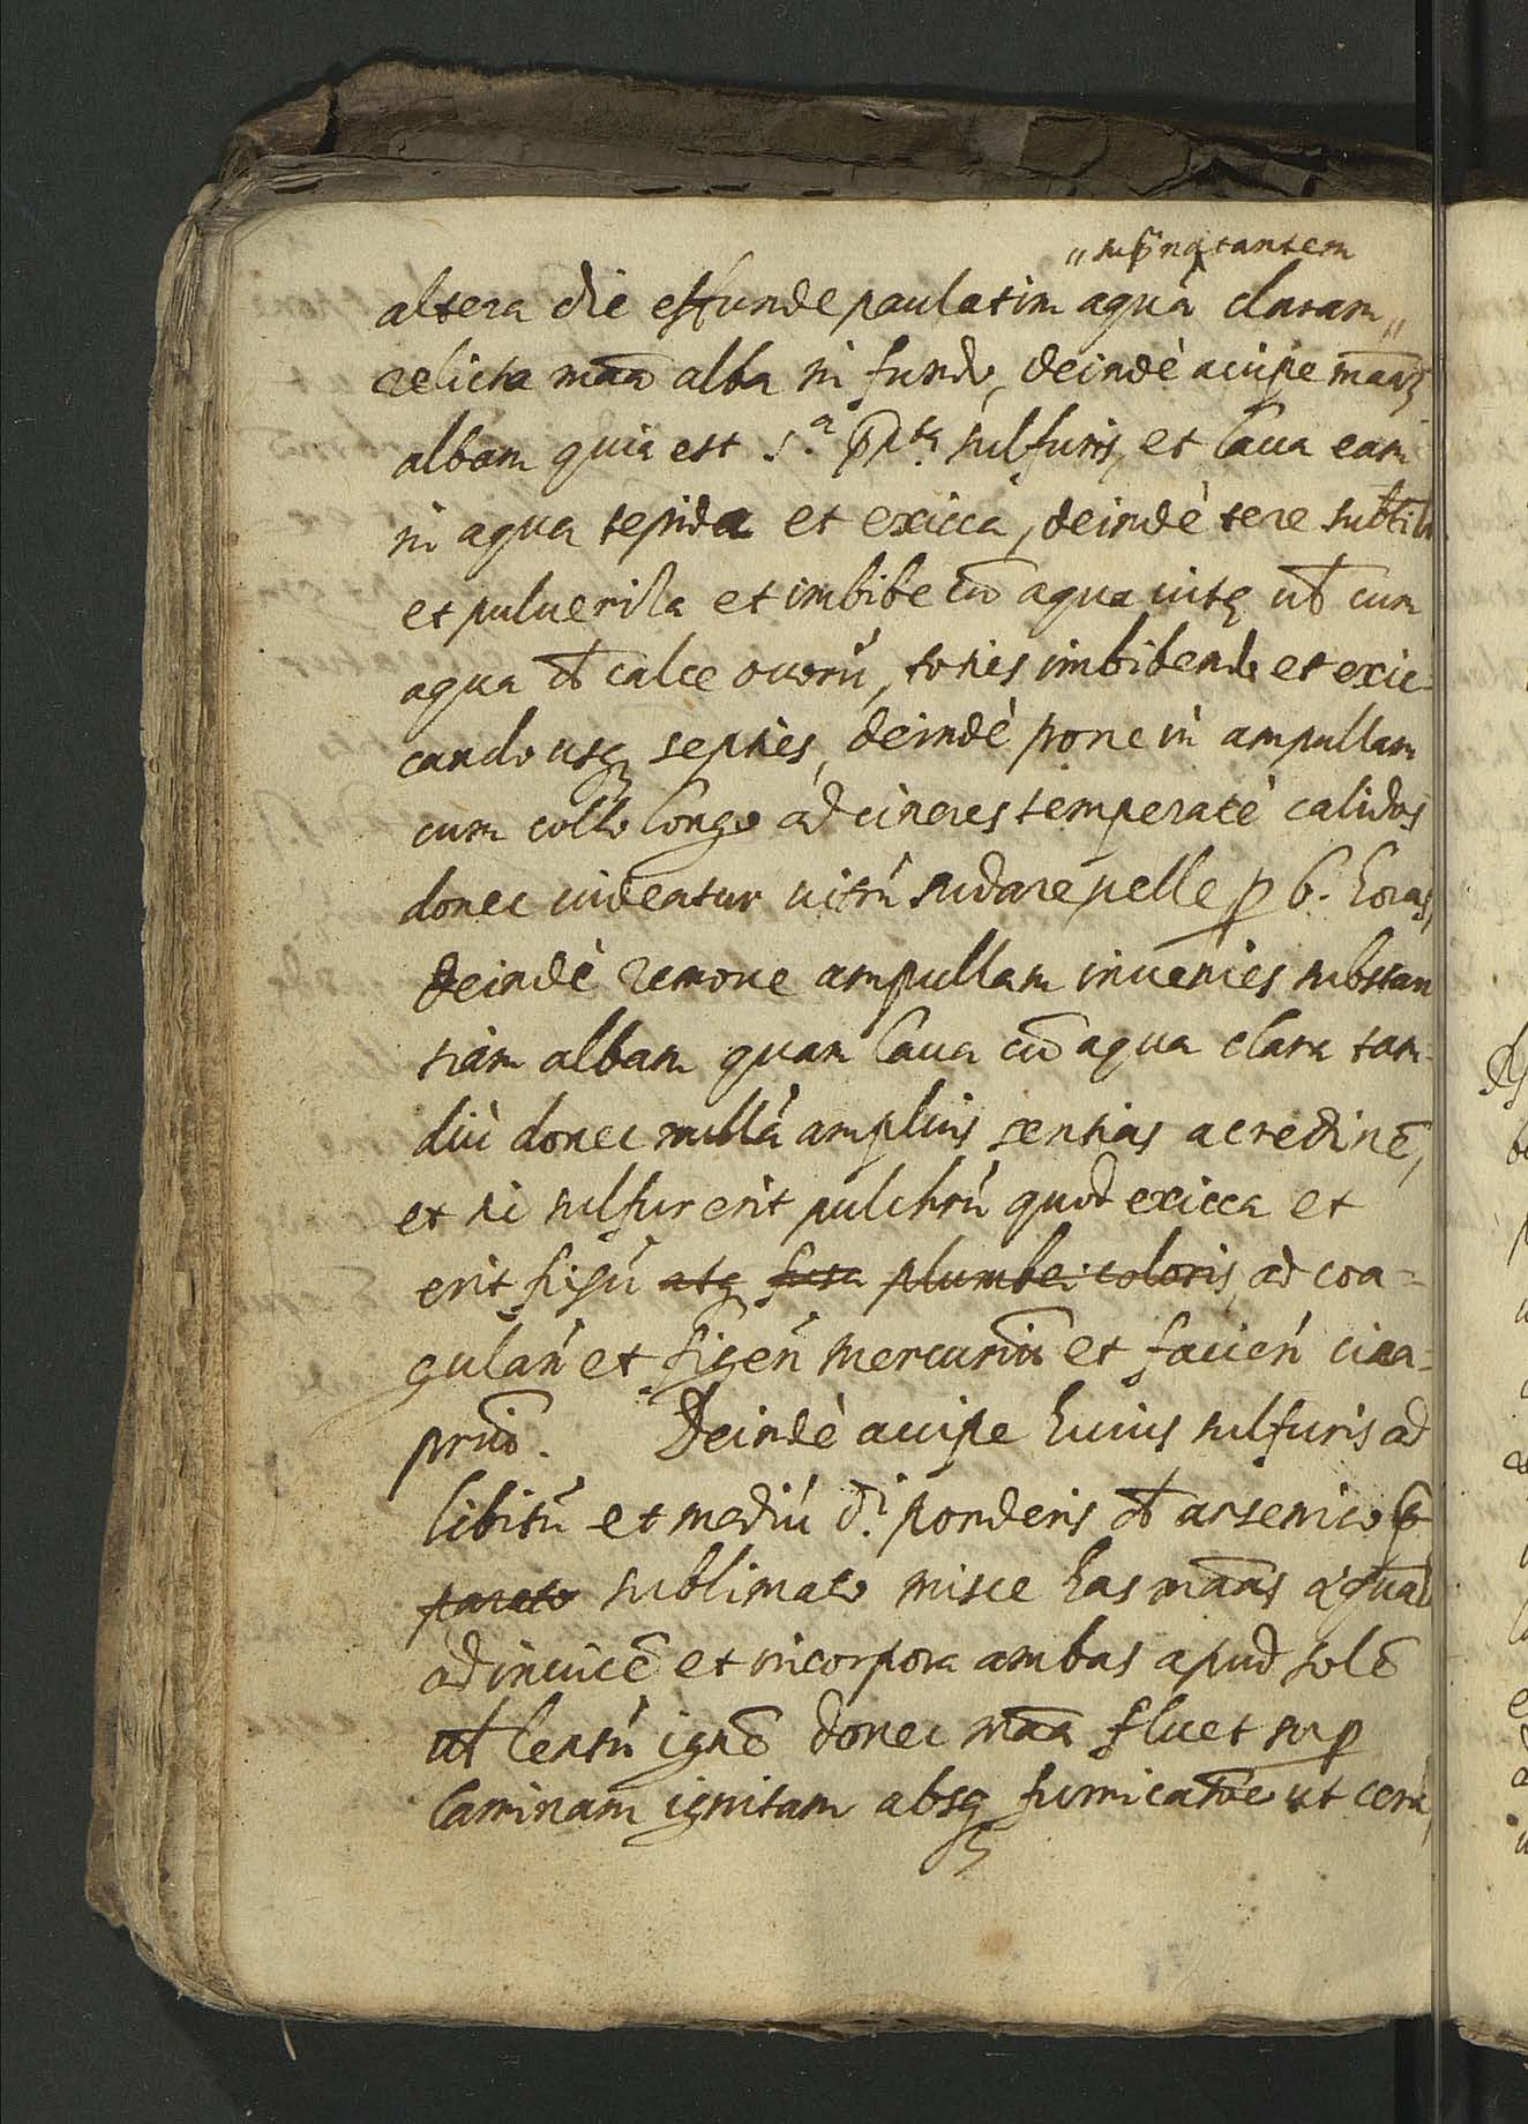 „sup̃natantem
altera die effunde paulatim aquà claram„
relicta mãa alba in fundo, deindè accipe mãaʒ
albam quia est s.ª sulfuris, et laua eam
in aqua tepida et exicca, deindè tere subtil
et pulueriza et imbibe cũ aqua uitę uł cum
aqua đ calce ouorú, toties imbibendo et exic=
cando usq septiès, deindè pone in ampullam
cum collo longo ad cineres temperatè calidos
donec uideatur uitrú sudare uelle p 6. horas,
deindè remoue ampullam inuenies substan
tiam albam quam laua cũ aqua clara tam=
diù donec nullà amplius sentias acredinẽ,
et sic sulfur erit pulchrú quod exicca et
erit fixú atq fusa plumbei coloris, ad coa=
gulań et figeń mercuriũ et facień cina=
priũ. Deindè accipe huius sulfuris ad
libitú et mediú d.ⁱ ponderis đ arsenico p̃
parato sublimato misce has mãas
adinuicẽ et incorpora ambas apud solẽ
uł lentú ignẽ donec mãa fluet sup
laminam ignitam absq fumicatõe ut cera,